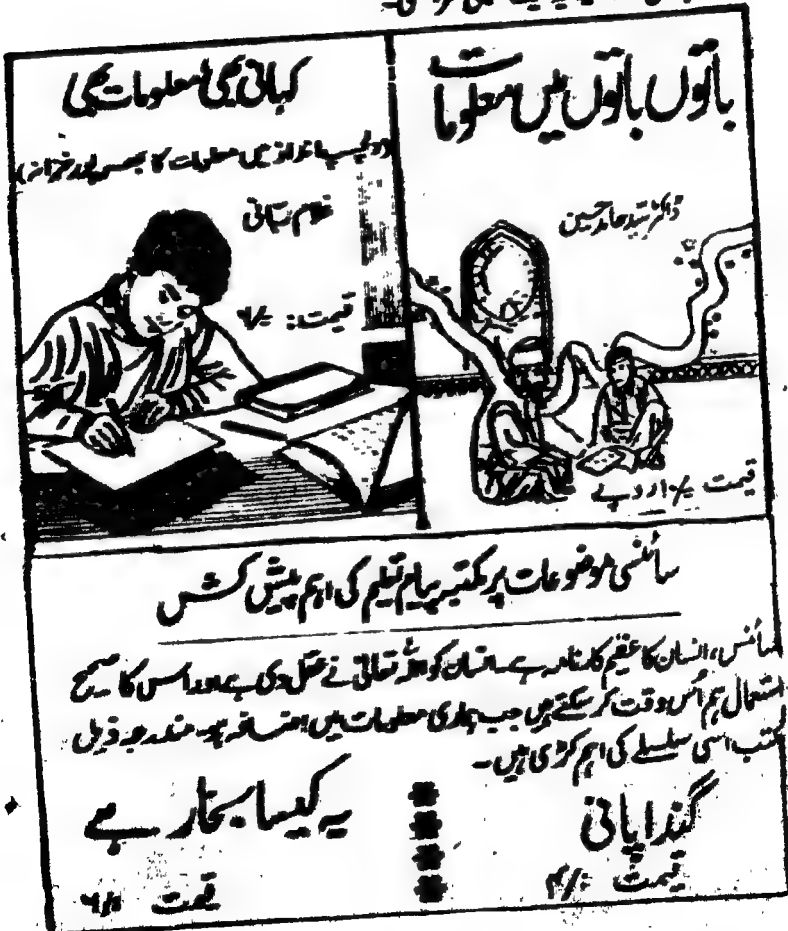 باتوں باتوں میں معلومات
ڈاکٹر سید حامد حسین
قیمت ۱۰/- روپے
کہانی بھی معلومات بھی
(دلچسپ انداز میں معلومات کا بھرپور خزانہ)
غلام ربانی
قیمت: ۶/-
سائنسی موضوعات پر مکتبہ پیام تعلیم کی اہم پیش کش
سائنس، انسان کا عظیم کارنامہ ہے۔ انسان کو اللہ تعالیٰ نے عقل دی ہے اور اس کا صحیح
استعمال ہم اُس وقت کر سکتے ہیں جب ہماری معلومات میں اضافہ ہو۔ مندرجہ ذیل
کتب اسی سلسلے کی اہم کڑی ہیں۔
گندا پانی
قیمت ۴/-
یہ کیسا بخار ہے
قیمت ۶/-